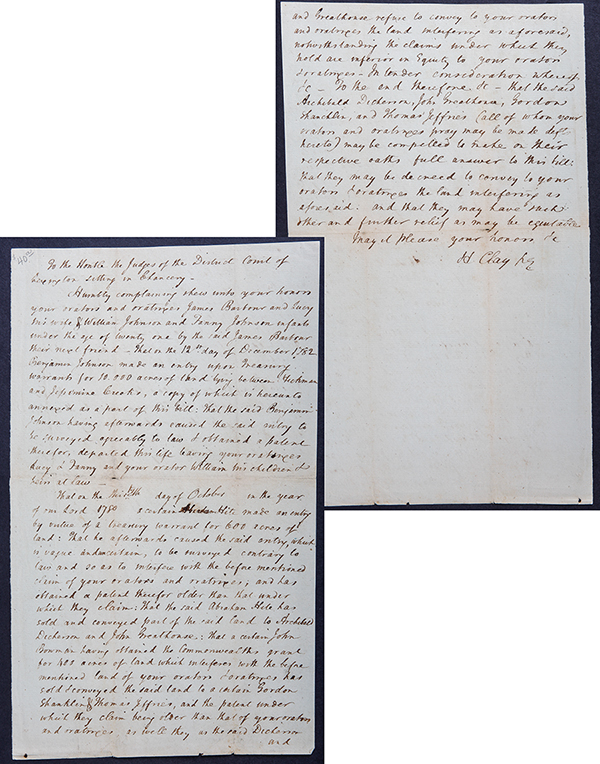 To the Honble the Judges of the District Court of
Lexington sitting in Chancery –
Humbly complaining shew unto your honors
your orators and oratrixes James Barbour and Lucy
his wife & William Johnson and Fanny Johnson infants
under the age of twenty one by the said James Barbour
their next friend – That on the 12th day of December 1782
Benjamin Johnson made an entry upon Treasury
warrants for 10.000 acres of land lying between Hickman
and Jessimine Creeks, a copy of which is hereunto
annexed as a part of this bill: That the said Benjamin
Johnson having afterwards caused the said entry to
be surveyed agreeably to law & obtained a patent
therefor, departed this life having your oratrixes
Lucy & Fanny and your orator William his children &
heirs at law –
That on the day of October in the year
of our Lord 1780 a certain Hite made an entry
by virtue of a Treasury warrant for 600 acres of
land: That he afterwards caused the said entry, which
is vague and uncertain, to be surveyed contrary to
law and so as to interfere with the before mentioned
claim of your orators and oratrixes; and has
obtained a patent therefor older than that under
which they claim: That the said Abraham Hite has
sold and conveyed part of the said land to Archibald
Dickerson and John Greathouse: that a certain John
Bowman having obtained the Commonwealths grant
for 400 acres of land which interferes with the before
mentioned land of your orators & oratrixes has
sold & conveyed the said land to a certain Gordon
Shanklin & Thomas Jeffries, and the patent under
which they claim being older than that of your orators
and oratrixes, as well they as the said Dickerson
and
and Greathouse refuse to convey to your orators
and oratrixes the land interfering as aforesaid,
notwithstanding the claims under which they
hold are inferior in Equity to your orators
& oratrixes – In tender consideration whereof
&c – To the end therefore &c – that the said
Archibald Dickerson, John Greathouse, Gordon
Shanchlin, and Thomas Jeffries (all of whom your
orators and oratrixes pray may be made defts
hereto) may be compelled to make on their
respective oaths full answer to this bill:
that they may be decreed to convey to your
orators & oratrixes the land interfering as
afores[ai]d: and that they may have such
other and further relief as may be equitable
May it please your honors &c
H Clay